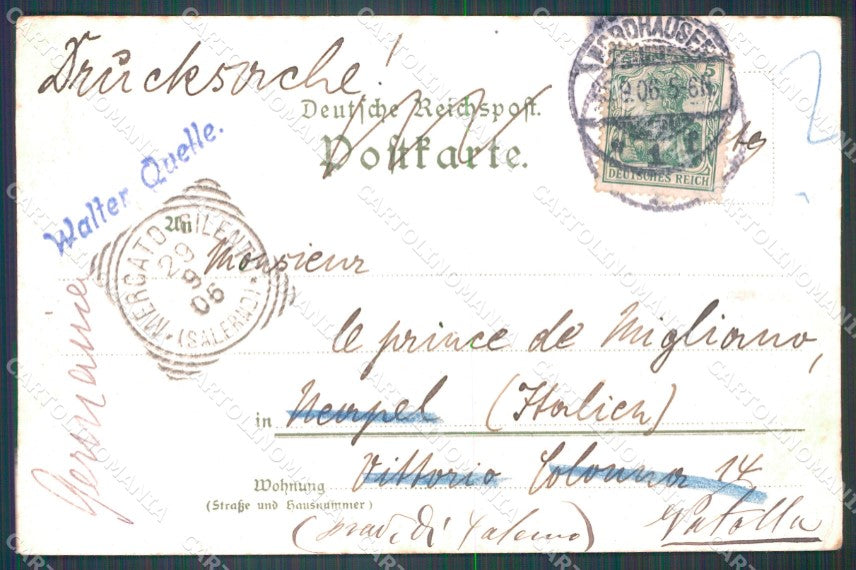 Drucksache!
Deutsche Reichspost.
Postkarte.
NORDHAUSEN
9.06.5-6N
DEUTSCHES REICH
Walter Quelle.
An
MERCATO CILENTO
29 9 06
(SALERNO)
Monsieur
le prince de Migliano,
in Neapel (Italien)
Vittorio Colonna 14
Wohnung
(Straße und Hausnummer)
(prov. di Salerno) Vatolla
Germania
CARTOLINOMANIA